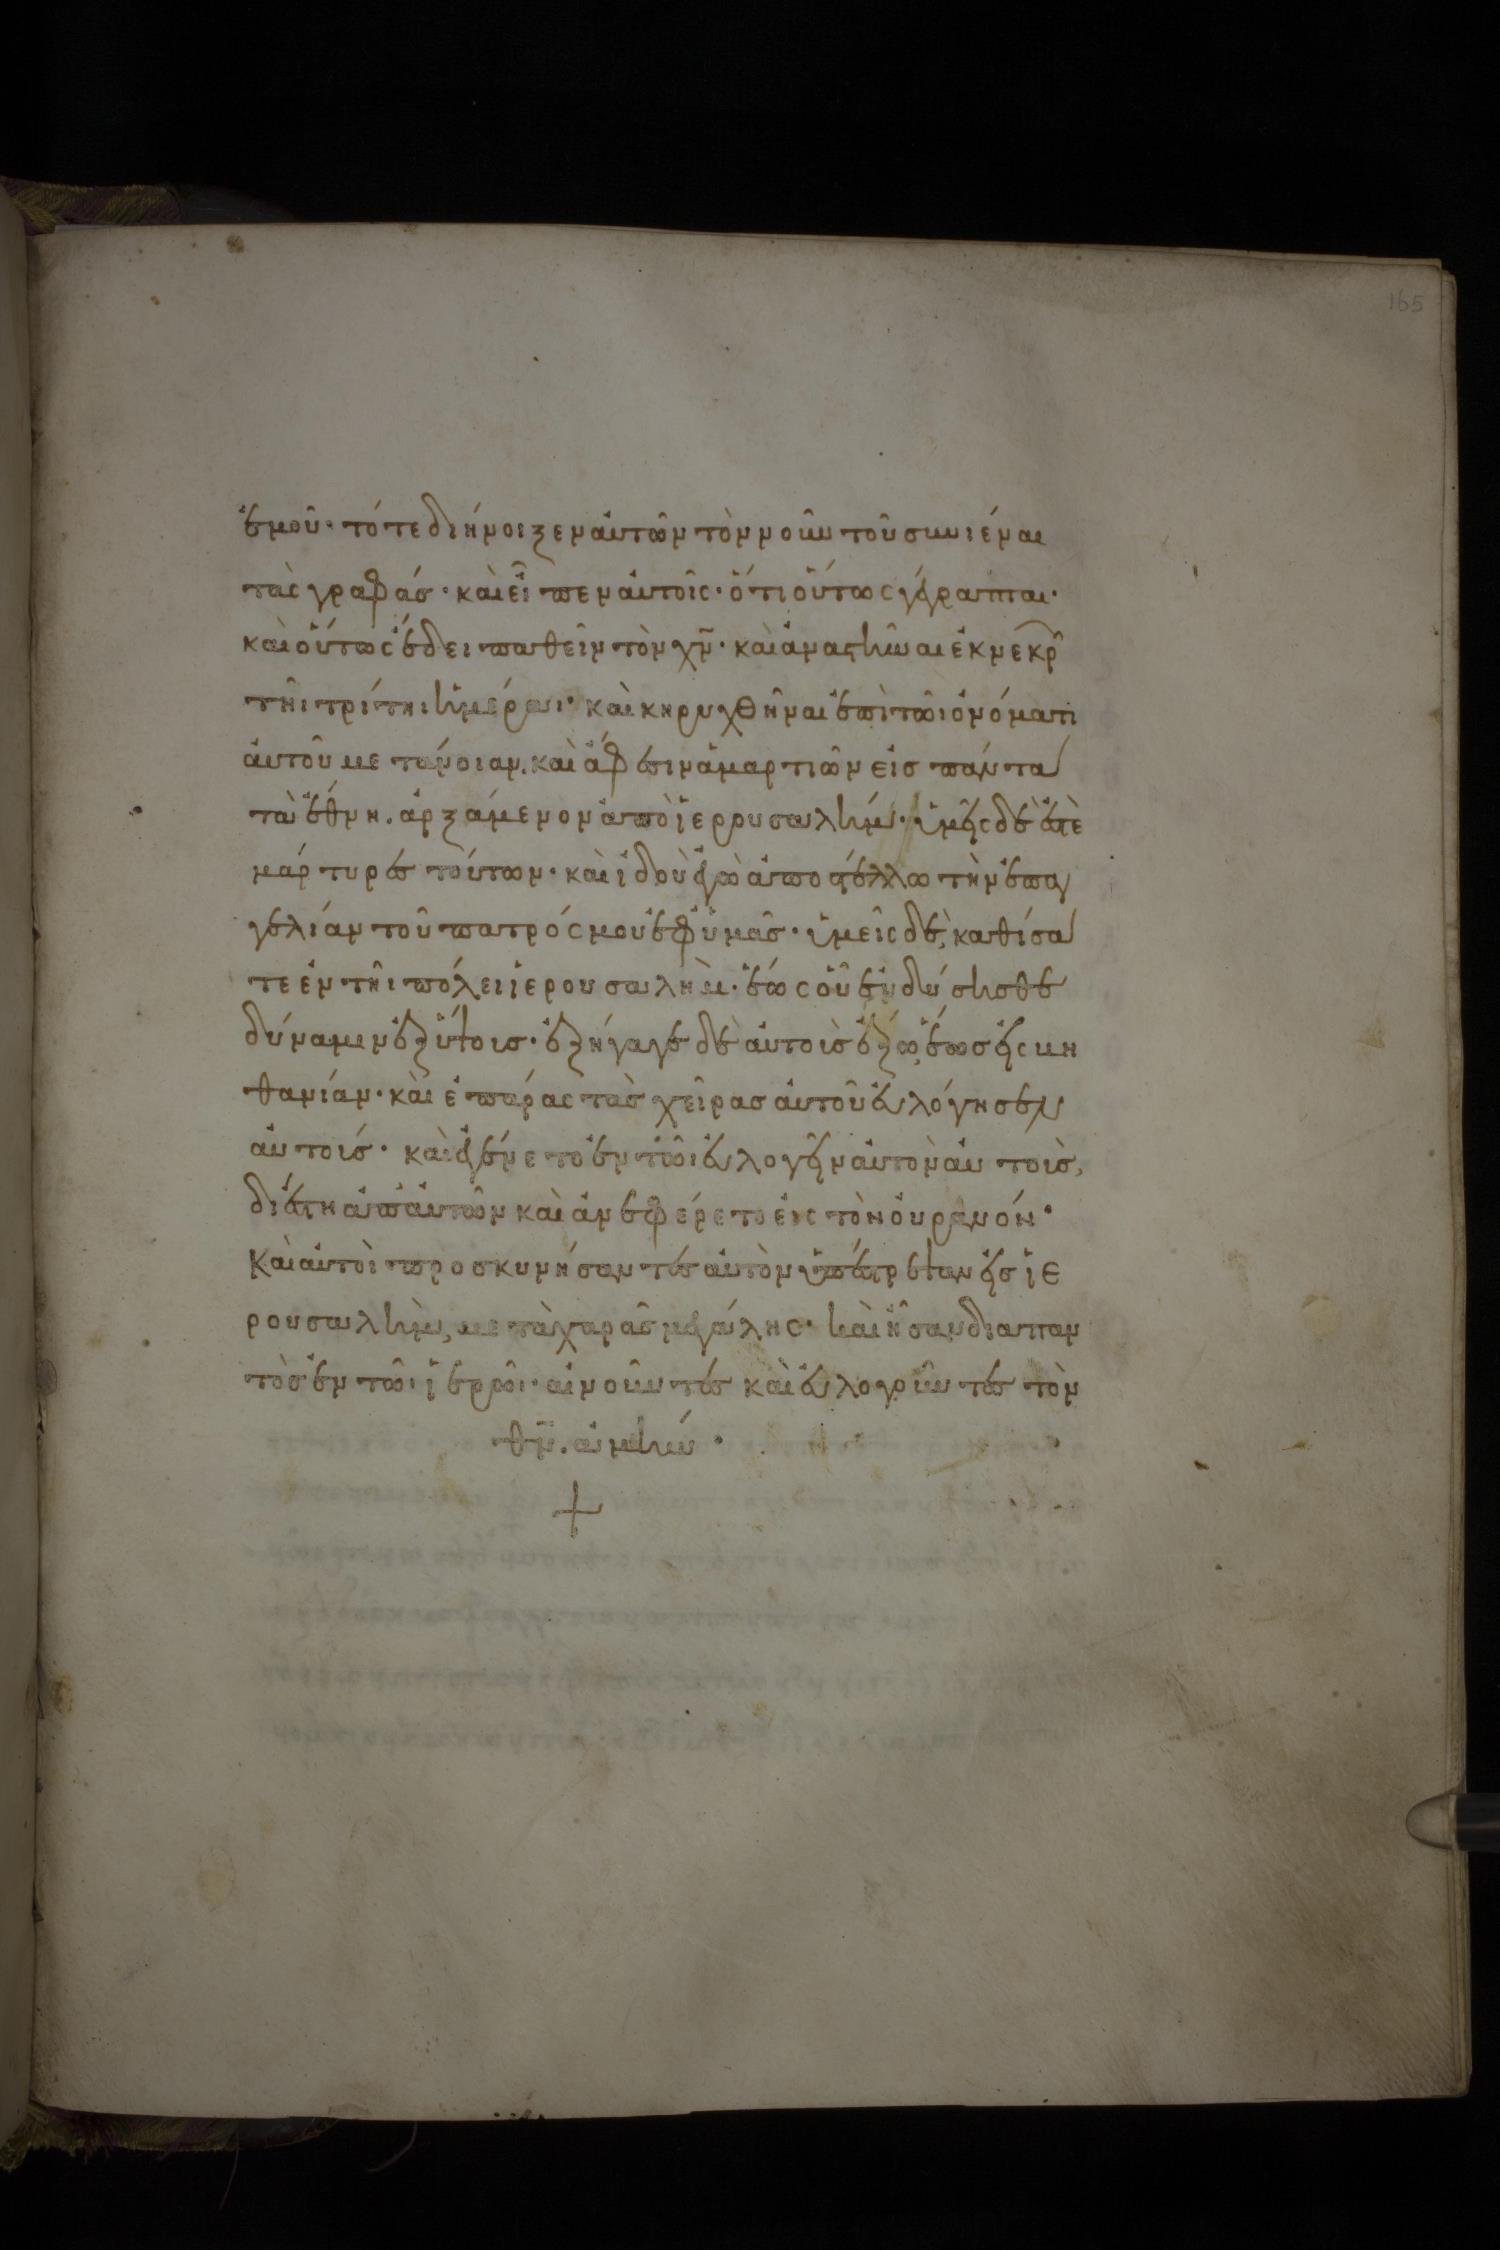 165
ἐμοῦ· τότε διήνοιξεν αὐτῶν τὸν νοῦν τοῦ συνιέναι
τὰς γραφάς· καὶ εἶπεν αὐτοῖς· ὅτι οὕτως γέγραπται·
καὶ οὕτως ἔδει παθεῖν τὸν χ̅ν̅· καὶ ἀναστῆναι ἐκ νεκρῶ
τῆι τρίτηι ἡμέραι· καὶ κηρυχθῆναι ἐπὶ τῶι ὀνόματι
αὐτοῦ μετάνοιαν. καὶ ἄφεσιν ἁμαρτιῶν εἰσ πάντα
τὰ ἔθνη. ἀρξάμενον ἀπὸ ἱερρουσαλήμ· ὑμεῖς δὲ ἐστὲ
μάρτυρες τούτων· καὶ ἰδοὺ ἐγὼ ἀποστέλλω τὴν ἐπαγ
γελίαν τοῦ πατρός μου ἐφ ὑμᾶς· ὑμεῖς δὲ, καθίσα
τε ἐν τῆι πόλει ἱερουσαλὴμ· ἕως οὗ ἐνδύσησθε
δύναμιν ἐξ ὕψουσ· ἐξήγαγε δὲ αὐτοὺσ ἔξω, ἕωσ εἰς βη
θανίαν· καὶ ἐπάρας τὰσ χεῖρασ αὐτοῦ εὐλόγησεν
αὐτούς· καὶ ἐγένετο ἐν τῶι εὐλογεῖν αὐτὸν αὐτοὺσ,
διέστη ἀπ αὐτῶν καὶ ἀνεφέρετο εἰς τὸν οὐρανόν·
Καὶ αὐτοὶ προσκυνήσαντες αὐτὸν ὑπέστρεψαν εἰσ ἱε
ρουσαλὴμ, μετὰ χαρᾶσ μεγάλης· καὶ ἦσαν διαπαν
τὸσ ἐν τῶι ἱερῶι· αἰνοῦντες καὶ εὐλογοῦντες τὸν
θ̅ν̅. ἀμήν·
+